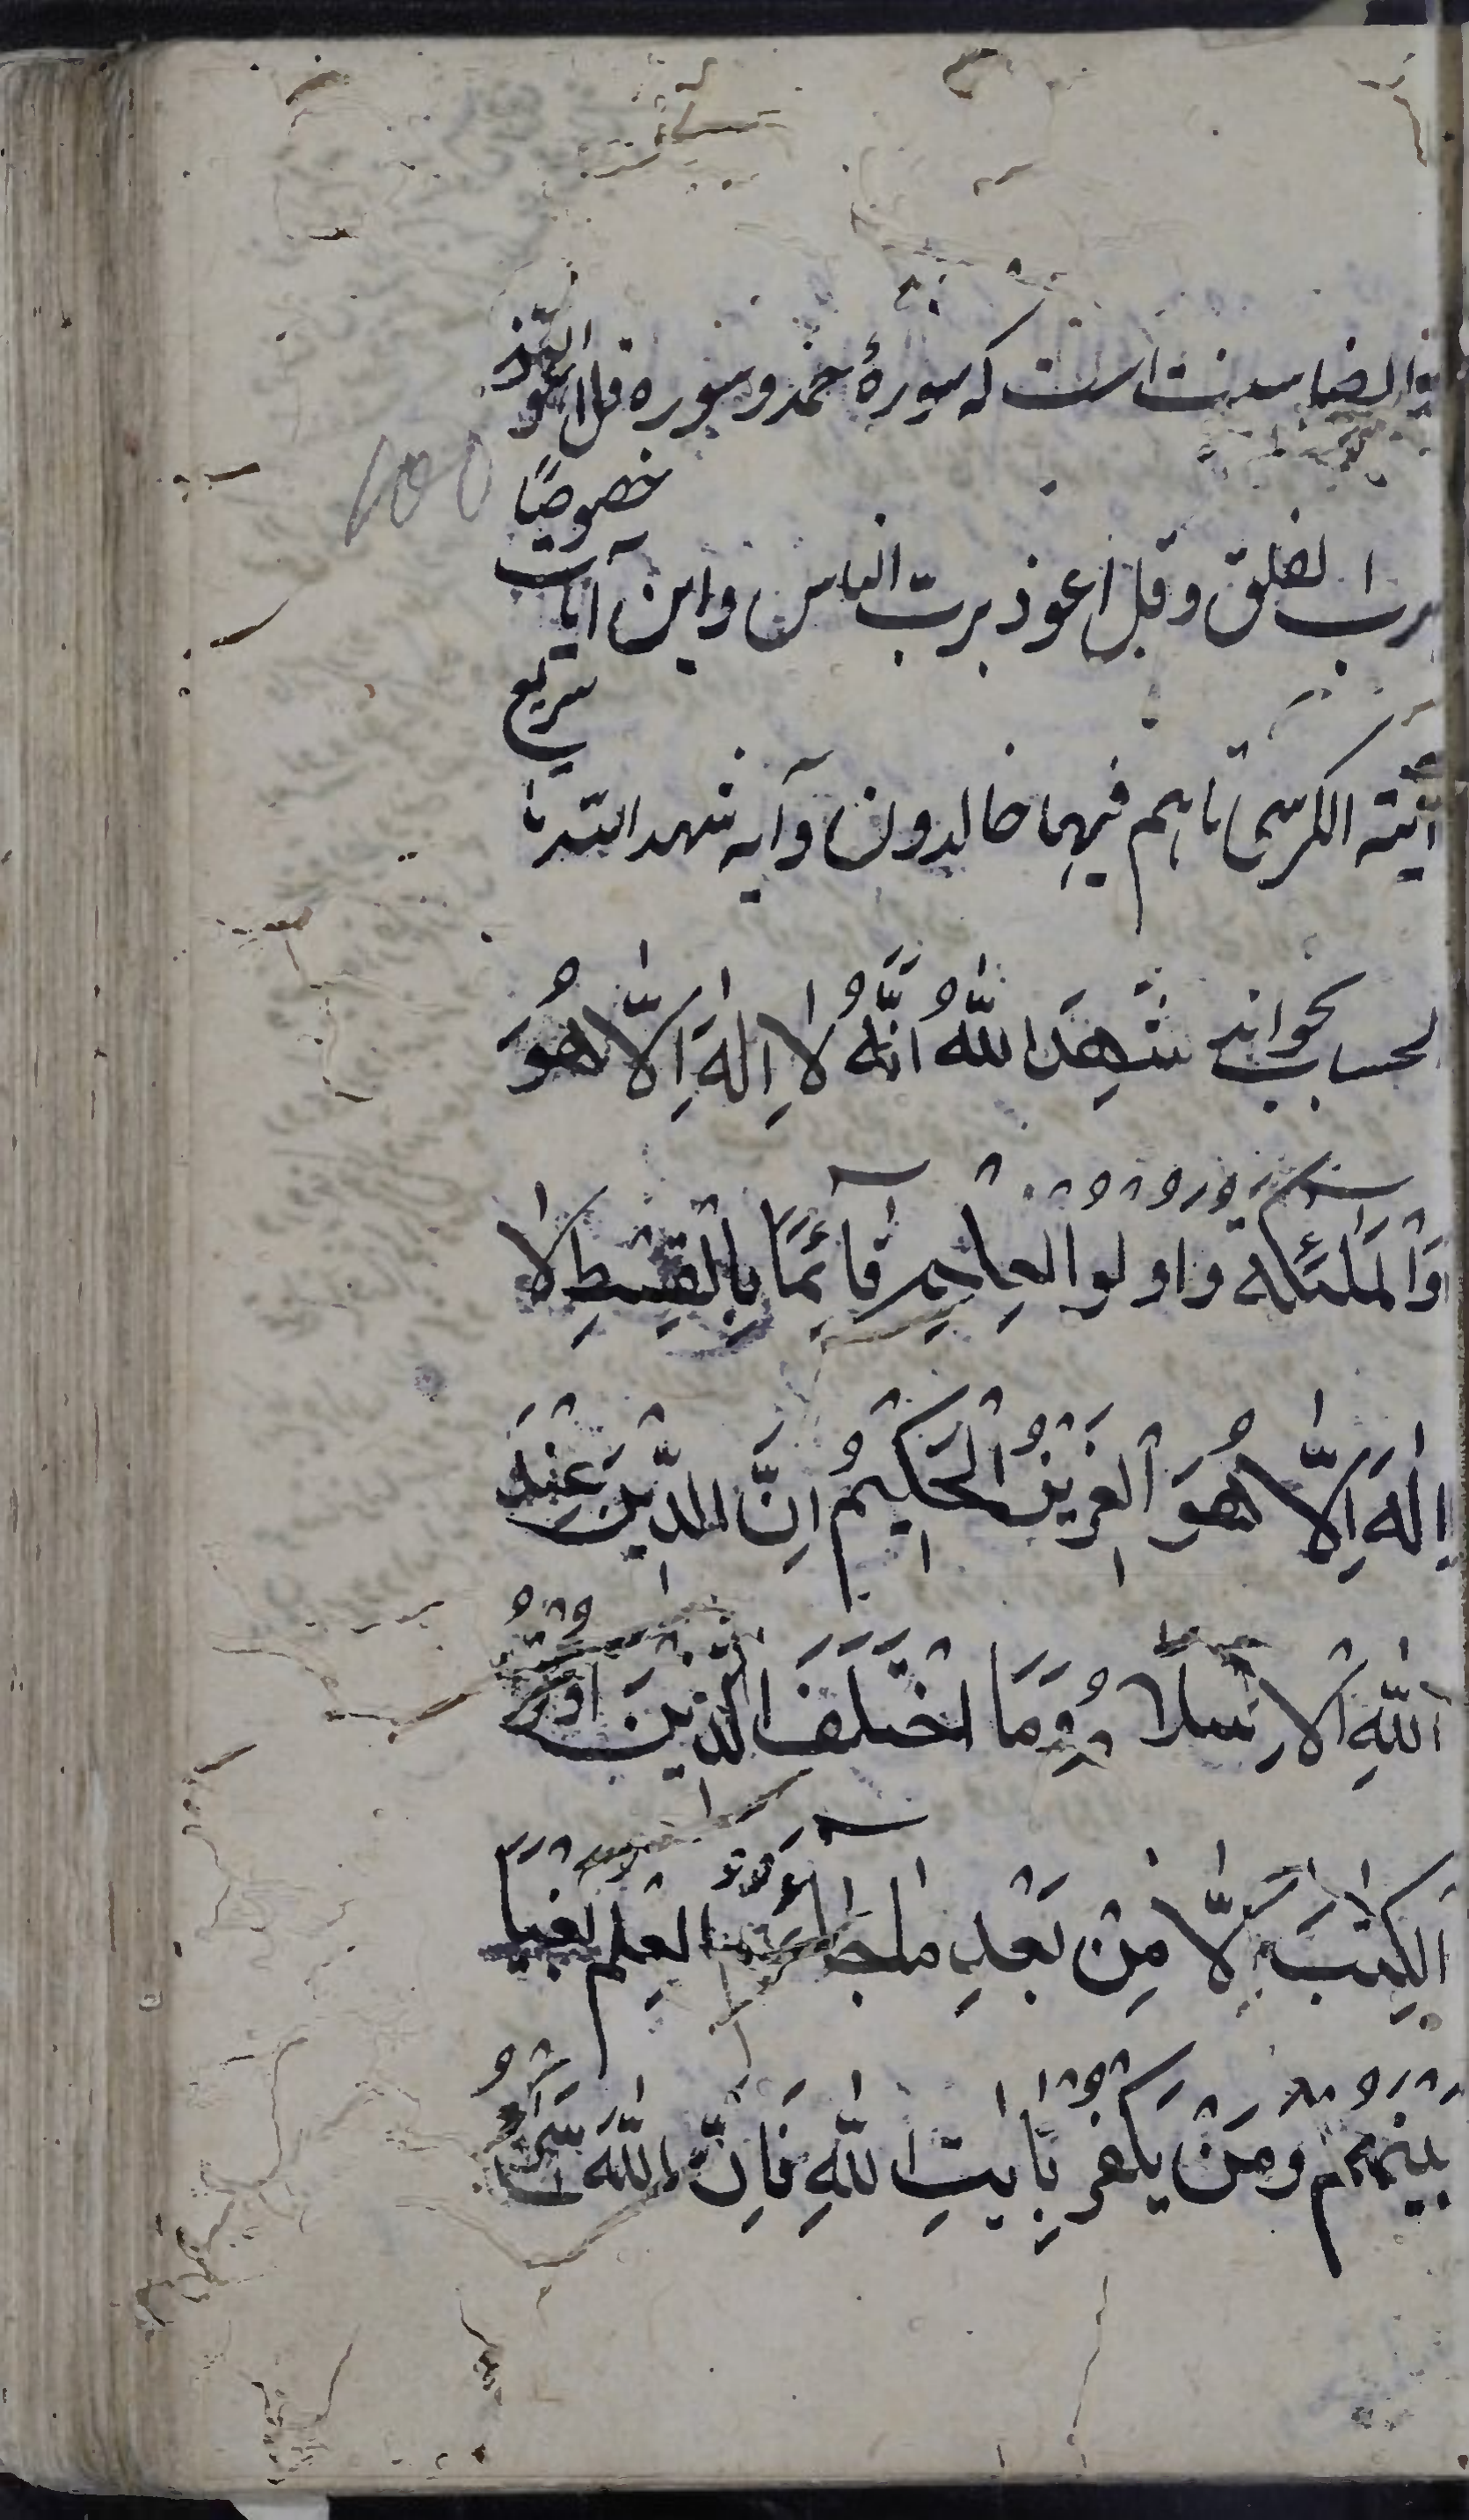 و ایضا سنت است که سورهٔ حمد و سوره قل اعوذ
برب الفلق و قل اعوذ برب الناس و این آیات خصوصًا
آیة الکرسی تا هم فیها خالدون و آیه شهد الله تا سریع
الحساب بخواند شَهِدَ اللّٰهُ اَنَّهُ لَا اِلٰهَ اِلَّا هُوَ
وَالْمَلٰئِکَةُ وَاُولُوا الْعِلْمِ قَآئِمًا بِالْقِسْطِ لَا
اِلٰهَ اِلَّا هُوَ الْعَزِیْزُ الْحَکِیْمُ اِنَّ الدِّیْنَ عِنْدَ
اللّٰهِ الْاِسْلَامُ وَمَا اخْتَلَفَ الَّذِیْنَ اُوْتُوا
الْکِتٰبَ اِلَّا مِنْ بَعْدِ مَا جَآءَهُمُ الْعِلْمُ بَغْیًا
بَیْنَهُمْ وَمَنْ یَکْفُرْ بِاٰیٰتِ اللّٰهِ فَاِنَّ اللّٰهَ سَرِیْعُ
100